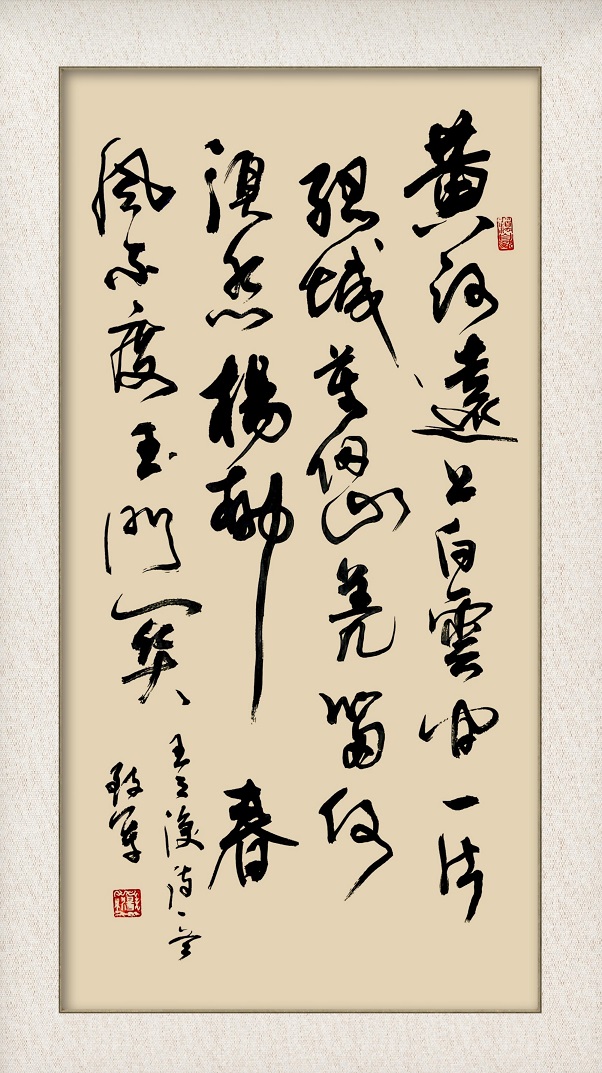 黃河遠上白雲間一片
孤城萬仞山羌笛何
須怨楊柳春
風不度玉門關
王之渙詩一首